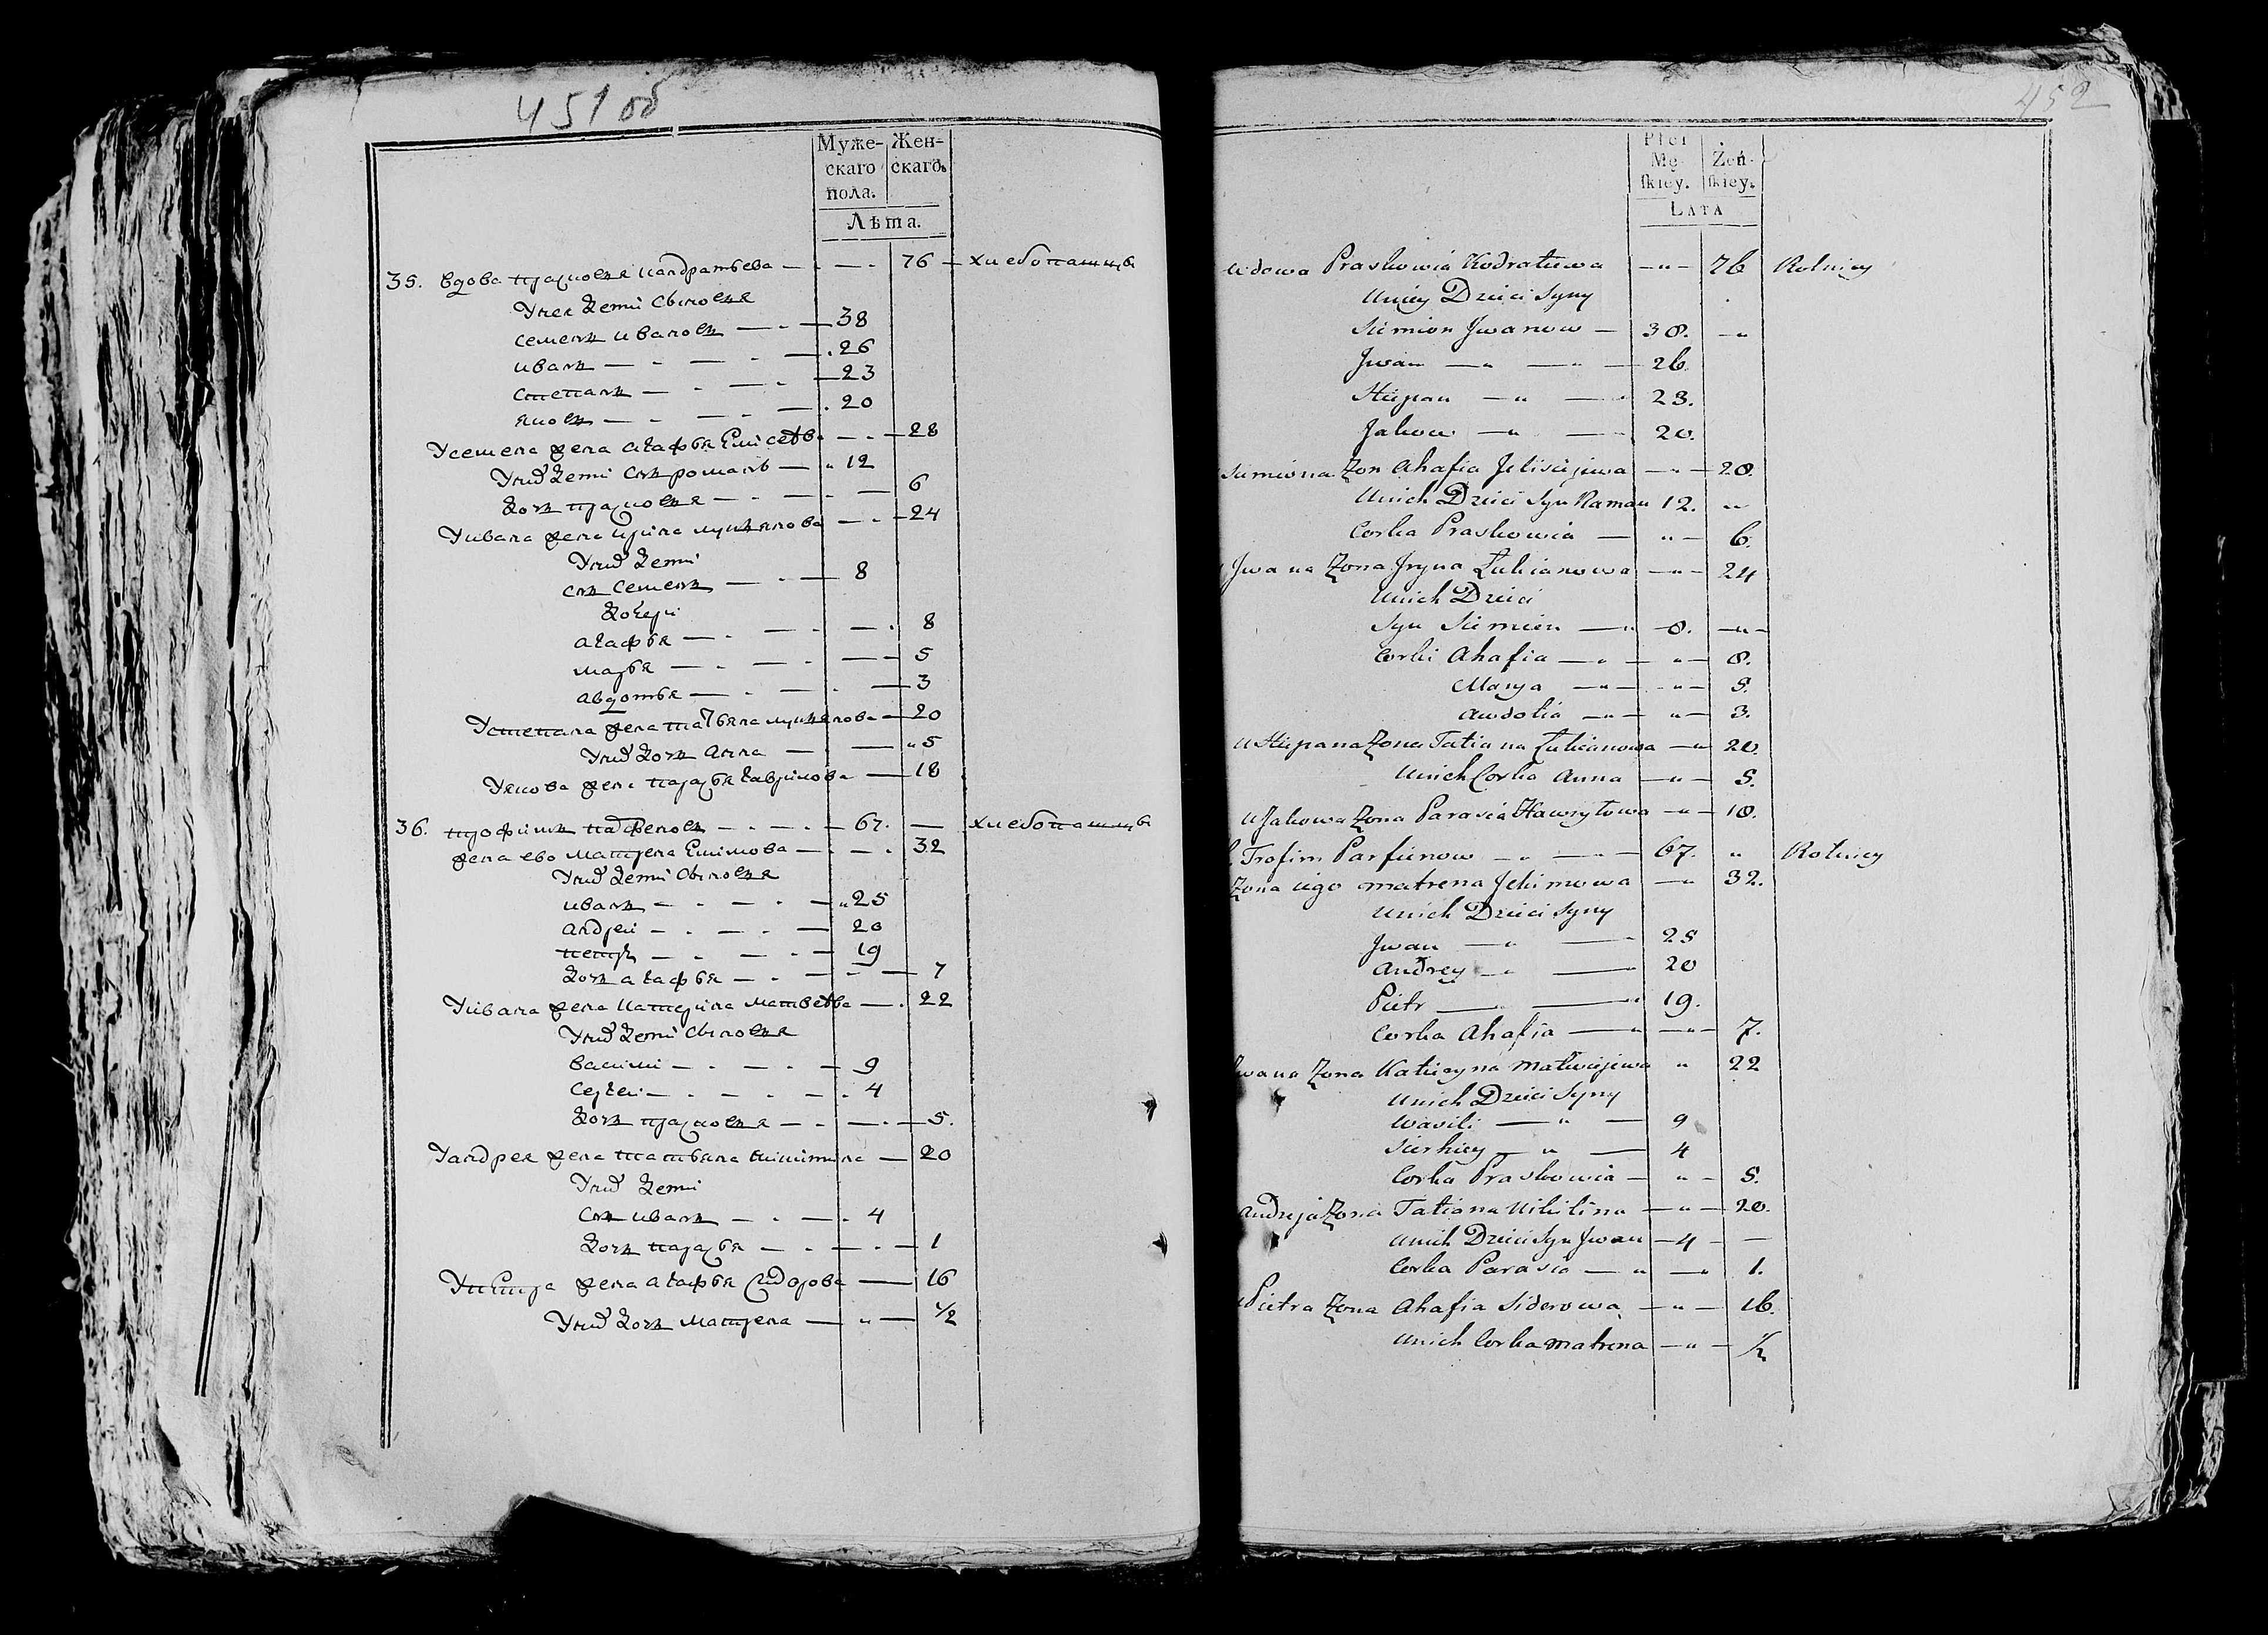 451 об
Муже- Жен-
скаго скаго.
пола.
Лѣта.
35. вдова прасковя кандратьева — 76 — хлебопашцы
Унея Дети Сыновя
Семенъ ивановъ — 38
иванъ — 26
степанъ — 23
яковъ — 20
Усемена жена агафья — 28
Уних Дети Снъ романъ — 12
Дочъ прасковя — 6
Уивана жена ирина лукянова — 24
Уних Дети
Снъ Семенъ — 8
Дочери
агафья — 8
марья — 5
авдотья — 3
Устепана жена татьяна лукянова — 20
Уних Дочъ анна — 5
Уякова жена парасья гаврилова — 18
36. трофимъ парфеновъ — 67. — хлебопашцы
жена ево матрена Екимова — 32
Уних Дети Сыновя
иванъ — 25
андреи — 20
петръ — 19
Дочъ агафья — 7
Уивана жена катерина матвеева — 22
Уних Дети Сыновя
васили — 9
Сергеи — 4
Дочъ прасковя — 5.
Уандрея жена татьяна — 20
Уних Дети
Снъ иванъ — 4
Дочъ парасья — 1
Упетра жена агафья Сидорова — 16
Уних Дочъ матрена — " — 1/2
452
Płci
Mę- Żeń-
ſkiey. ſkiey.
Lata
wdowa Praskowia Kodratiewa — " — 76 Rolnicy
Uniey Dzieci Syny
Siemion Jwanow — 38. — "
Jwan — " — " — 26.
Stiepan — " — 23.
Jakow — " — 20.
Siemiona Zon Ahafia Jelisiejewa — " — 28.
Unich Dzieci Syn Raman 12. — "
Corka Praskowia — " — 6.
Jwana Zona Jryna Łukianowa — " — 24
Unich Dzieci
Syn Siemien — " 8. — " —
Corki Ahafia — " — " — 8.
Marya — " — " — 5.
Awdotia — " — " — 3.
U Stiepana Zona Tatiana Łukianowa — " 20.
Unich Corka Anna — " — 5.
U Jakowa Zona Parasia Hawryłowa — " — 18.
Trofim Parfienow — " — " — 67. " Rolnicy
Zona iego Matrena Jekimowa — " 32.
Unich Dzieci Syny
Jwan — " — 25
Andrey — " — 20
Pietr — " 19.
Corka Ahafia — " — " — 7.
Jwana Zona Katieryna Matwiejewa " 22
Unich Dzieci Syny
Wasili — " — 9
Sierhiey — " — 4
Corka Praskowia — " — 5.
Andreja Zona Tatiana Nikitina — " — 20.
Unich Dzieci Syn Jwan — 4 — —
Corka Parasia — " — " 1.
U Pietra Zona Ahafia Siderowa — " — 16.
Unich Corka Matrena — " — 1/2